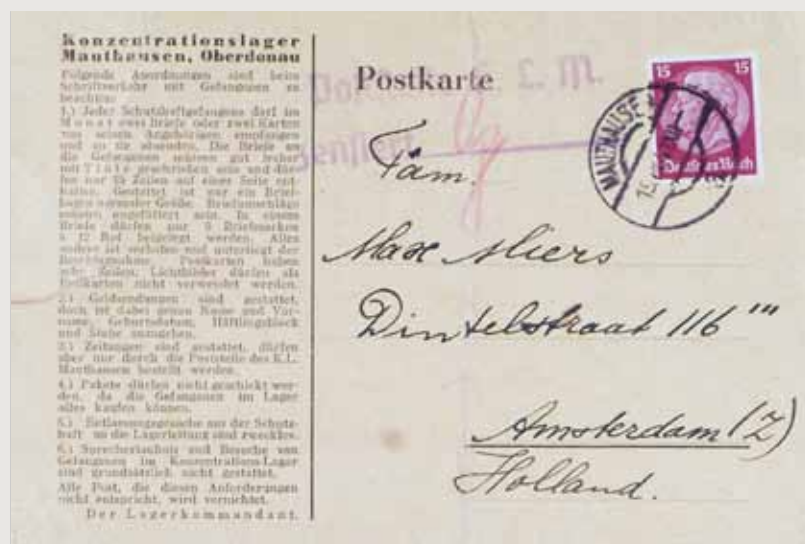 Konzentrationslager
Mauthausen, Oberdonau
Folgende Anordnungen sind beim
Schriftverkehr mit Gefangenen zu
beachten:
1.) Jeder Schutzhaftgefangene darf im
Monat zwei Briefe oder zwei Karten
von seinen Angehörigen empfangen
und an sie absenden. Die Briefe an
die Gefangenen müssen gut lesbar
mit Tinte geschrieben sein und dür-
fen nur 15 Zeilen auf einer Seite ent-
halten. Gestattet ist nur ein Brief-
bogen normaler Größe. Briefumschläge
müssen ungefüttert sein. In einem
Briefe dürfen nur 5 Briefmarken
à 12 Rpf beigelegt werden. Alles
andere ist verboten und unterliegt der
Beschlagnahme. Postkarten haben
zehn Zeilen. Lichtbilder dürfen als
Postkarten nicht verwendet werden.
2.) Geldsendungen sind gestattet,
doch ist dabei genau Name und Vor-
name, Geburtsdatum, Häftlingsblock
und Stube anzugeben.
3.) Zeitungen sind gestattet, dürfen
aber nur durch die Poststelle des K.L.
Mauthausen bestellt werden.
4.) Pakete dürfen nicht geschickt wer-
den, da die Gefangenen im Lager
alles kaufen können.
5.) Entlassungsgesuche aus der Schutz-
haft an die Lagerleitung sind zwecklos.
6.) Sprecherlaubnis und Besuche von
Gefangenen im Konzentrations-Lager
sind grundsätzlich nicht gestattet.
Alle Post, die diesen Anforderungen
nicht entspricht, wird vernichtet.
Der Lagerkommandant.
Postkarte
K. L. M.
zensiert
15 15
Deutsches Reich
MAUTHAUSEN
Fam.
Max Miers
Dintelstraat 116'''
Amsterdam (Z)
Holland.